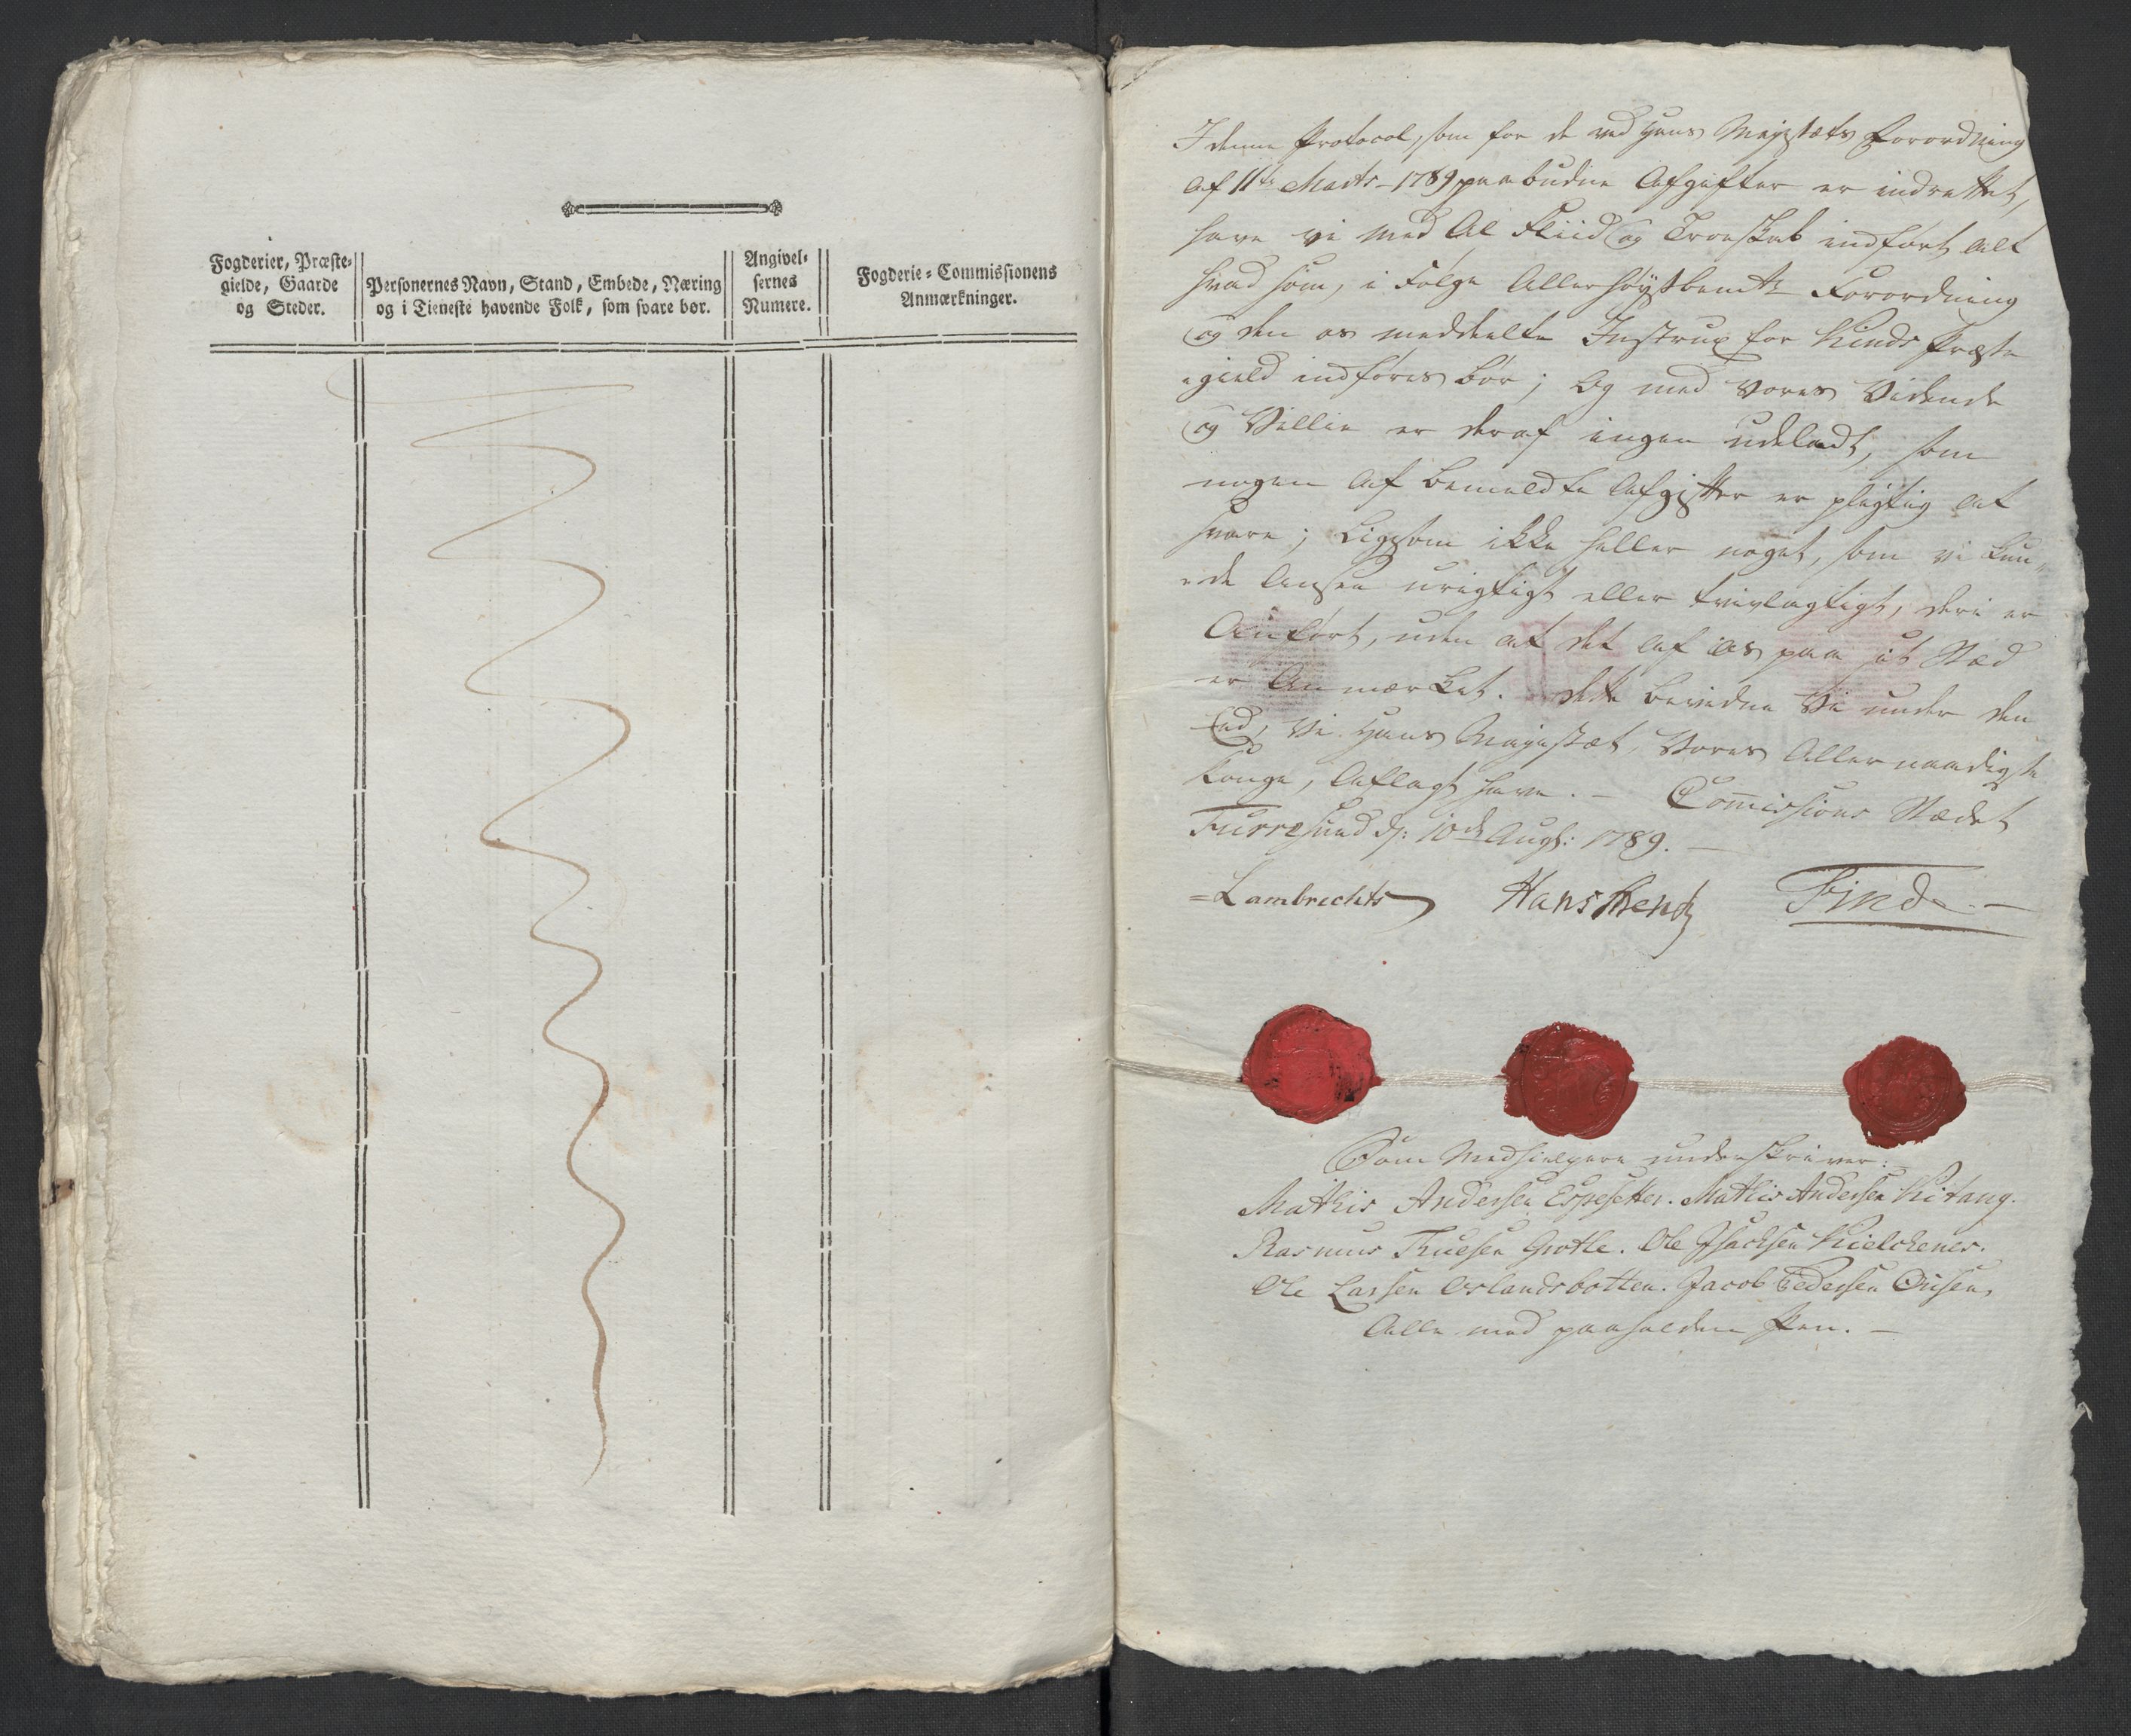 Fogderier, Præste-
gielde, Gaarde
og Steder.
Personernes Navn, Stand, Embede, Næring
og i Tieneste havende Folk, som svare bør.
Angivel-
sernes
Numere.
Fogderie-Commissionens
Anmærkninger.
I denne Protocol, som for de ved Hans Mayestæts Forordning
af 11te Marts 1789 paabudne Afgifter er indrettet,
have vi med Al Fliid og Troeskab indført alt
hvad som, i Følge Allerhøystbemte Forordning
og den os meddeelte Instrux for Kinds Præste
=gield indføres bør; og med vores Vidende
og Villie er deraf ingen udeladt, som
nogen af bemeldte Afgifter er pligtig at
svare; Ligesom ikke heller noget, som vi kun-
=de Ansee urigtigt eller tvivlagtigt, deri er
Anført, uden at det af os paa sit Stæd
er Anmærket. Dette bevidne Vi under den
Eed, Vi Hans Mayestæt, Vores Allernaadigste
Konge, Aflagt have. — Commissions Stædet
Furresund d: 10de Augst: 1789. —
=Lambrechts Hans Finde. —
Som Medhielpere underskriver:
Mathis Andersen Espesetter. Mathis Andersen Kitang.
Rasmus Truesen Grotle. Ole Isachsen Hielchenes.
Ole Larsen Oslandsbotten. Jacob Pedersen Ousen,
Alle med paaholden Pen. —